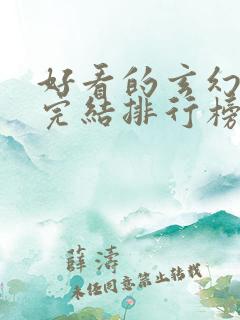 好看的玄幻
完结排行榜
薛涛
未经同意禁止转载